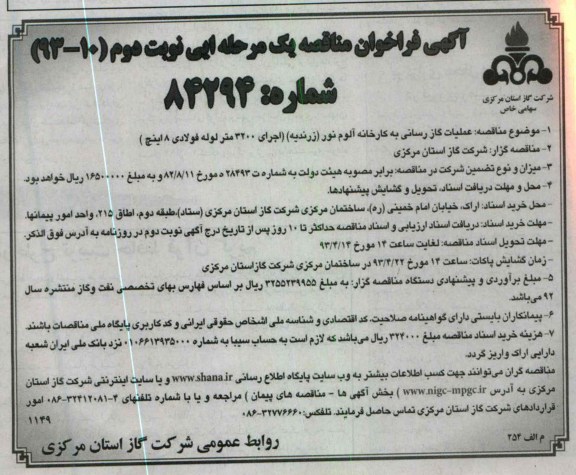 آگهی فراخوان مناقصه یک مرحله ایی نوبت دوم (۱۰-۹۳)
شماره: ۸۴۲۹۴
شرکت گاز استان مرکزی
سهامی خاص
۱- موضوع مناقصه: عملیات گاز رسانی به کارخانه آلوم نور (زرندیه) (اجرای ۳۲۰۰ متر لوله فولادی ۸ اینچ )
۲- مناقصه گزار: شرکت گاز استان مرکزی
۳- میزان و نوع تضمین شرکت در مناقصه: برابر مصوبه هیئت دولت به شماره ت ۲۸۴۹۳ ه مورخ ۸۲/۸/۱۱ و به مبلغ ۱۶۵۰۰۰۰۰۰ ریال خواهد بود.
۴- محل و مهلت دریافت اسناد، تحویل و گشایش پیشنهادها.
- محل خرید اسناد: اراک، خیابان امام خمینی (ره)، ساختمان مرکزی شرکت گاز استان مرکزی (ستاد)،طبقه دوم، اطاق ۲۱۵، واحد امور پیمانها.
- مهلت خرید اسناد: دریافت اسناد ارزیابی و اسناد مناقصه حداکثر تا ۱۰ روز پس از تاریخ درج آگهی نوبت دوم در روزنامه به آدرس فوق الذکر.
- مهلت تحویل اسناد مناقصه: لغایت ساعت ۱۴ مورخ ۹۳/۴/۱۴
- زمان گشایش پاکات: ساعت ۱۴ مورخ ۹۳/۴/۲۲ در ساختمان مرکزی شرکت گازاستان مرکزی
۵- مبلغ برآوردی و پیشنهادی دستگاه مناقصه گزار: به مبلغ ۳۲۵۵۲۳۹۹۵۵ ریال بر اساس فهارس بهای تخصصی نفت وگاز منتشره سال
۹۲ می‌باشد.
۶- پیمانکاران بایستی دارای گواهینامه صلاحیت، کد اقتصادی و شناسه ملی اشخاص حقوقی ایرانی و کد کاربری پایگاه ملی مناقصات باشند.
۷- هزینه خرید اسناد مناقصه مبلغ ۳۲۴۰۰۰ ریال می‌باشد که لازم است به حساب سیبا به شماره ۰۱۰۶۶۱۳۹۳۵۰۰۰ نزد بانک ملی ایران شعبه
دارایی اراک واریز گردد.
مناقصه گران می‌توانند جهت کسب اطلاعات بیشتر به وب سایت پایگاه اطلاع رسانی www.shana.ir و یا سایت اینترنتی شرکت گاز استان
مرکزی به آدرس www.nigc-mpgc.ir ) بخش آگهی ها - مناقصه های پیمان ) مراجعه و یا با شماره تلفنهای ۴-۳۲۴۱۲۰۸۱-۰۸۶ امور
قراردادهای شرکت گاز استان مرکزی تماس حاصل فرمایند. تلفکس: ۳۲۷۷۶۶۶۰-۰۸۶
۱۱۴۹
م الف ۲۵۴
روابط عمومی شرکت گاز استان مرکزی